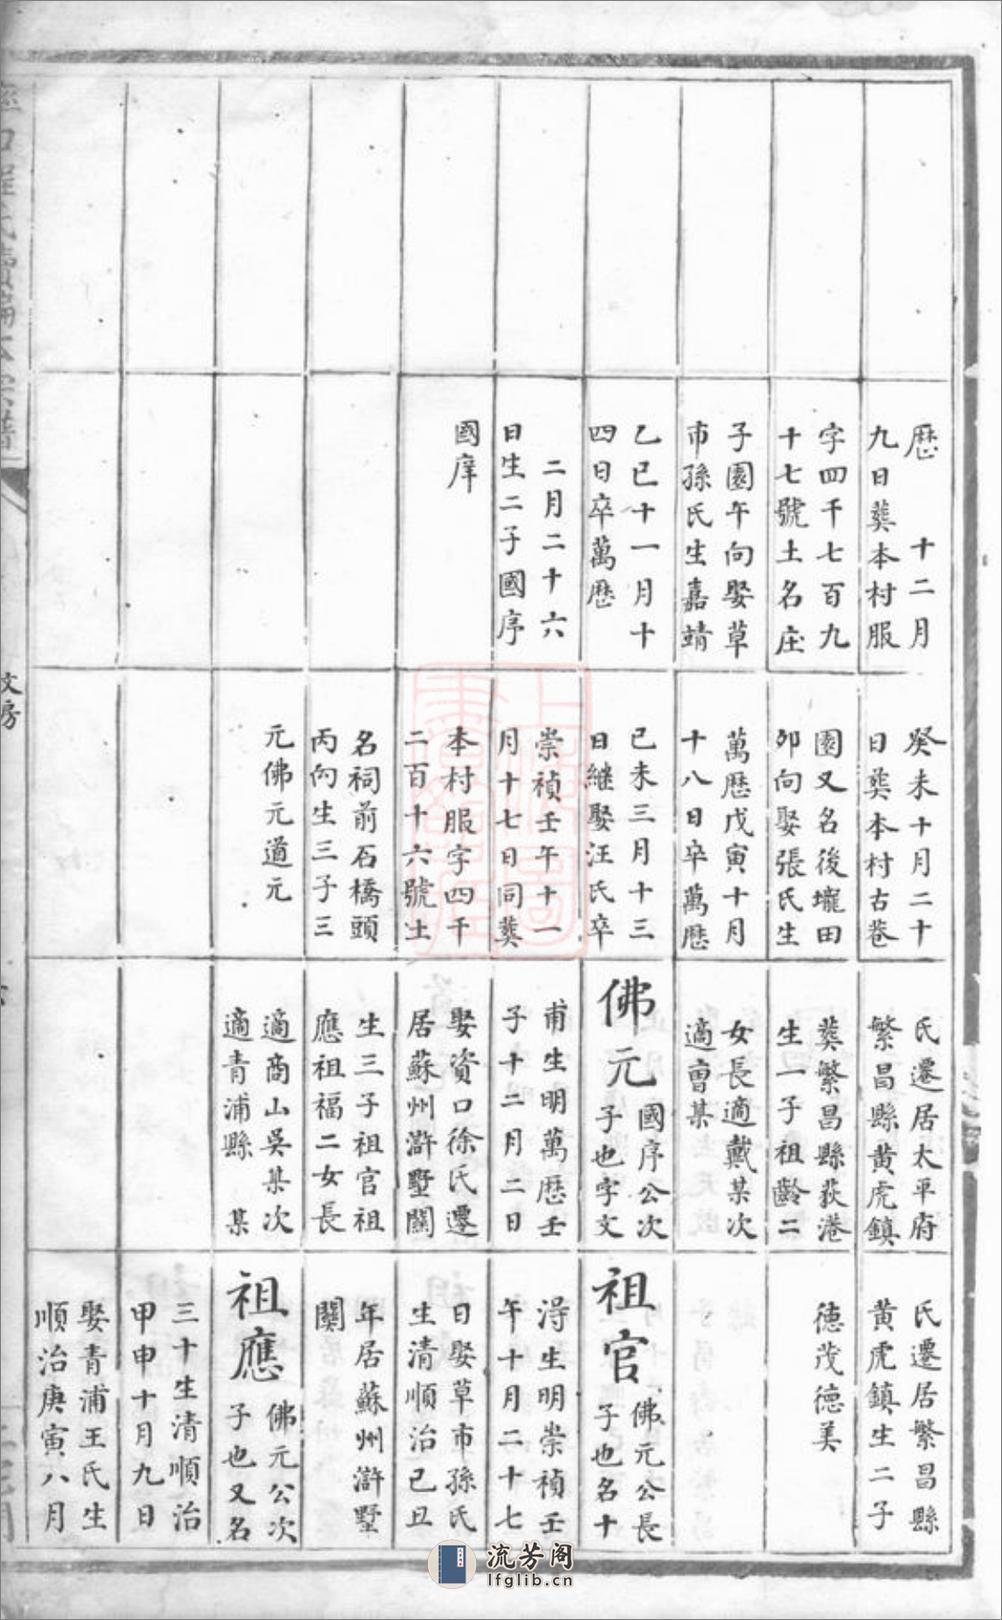 歷　十二月
九日葬本村服
字四千七百九
十七號土名庄
子園午向娶草
市孫氏生嘉靖
乙巳十一月十
四日卒萬歷
二月二十六
日生二子國序
國庠
癸未十月二十
日葬本村古巷
園又名後壠田
夘向娶張氏生
萬歷戊寅十月
十八日卒萬歷
己未三月十三
日繼娶汪氏卒
崇禎壬午十一
月十七日同葬
本村服字四千
二百十六號土
名祠前石橋頭
丙向生三子三
元佛元道元
氏遷居太平府
繁昌縣黄虎鎮
葬繁昌縣荻港
生一子祖齡二
女長適戴某次
適曺某
佛元
國序公次
子也字文
甫生明萬歷壬
子十二月二日
娶資口徐氏遷
居蘇州滸墅關
生三子祖官祖
應祖福二女長
適商山吳某次
適青浦縣　某
氏遷居繁昌縣
黄虎鎮生二子
德茂德美
祖官
佛元公長
子也名十
淂生明崇禎壬
午十月二十七
日娶草市孫氏
生清順治己丑
年居蘇州滸墅
關
祖應
佛元公次
子也又名
三十生清順治
甲申十月九日
娶青浦王氏生
順治庚寅八月
口程氏續編本宗譜
文房
流芳阁
lfglib.cn